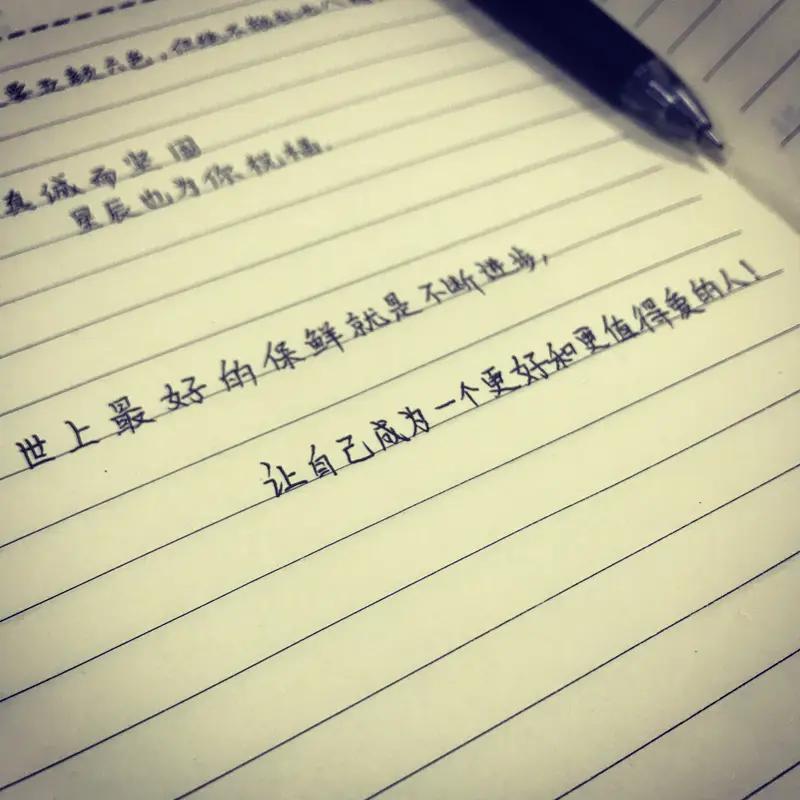 你给不了
真诚而坚固
星辰也为你祝福.
世上最好的保鲜就是不断进步,
让自己成为一个更好和更值得爱的人!